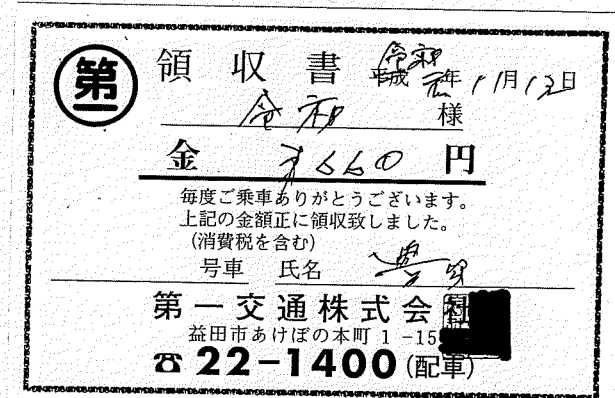 第一
領収書 令和 平成 元年 11月13日
令和 様
金 ¥660 円
毎度ご乗車ありがとうございます。
上記の金額正に領収致しました。
(消費税を含む)
号車 氏名
第一交通株式会社
益田市あけぼの本町1-15
☎22-1400(配車)